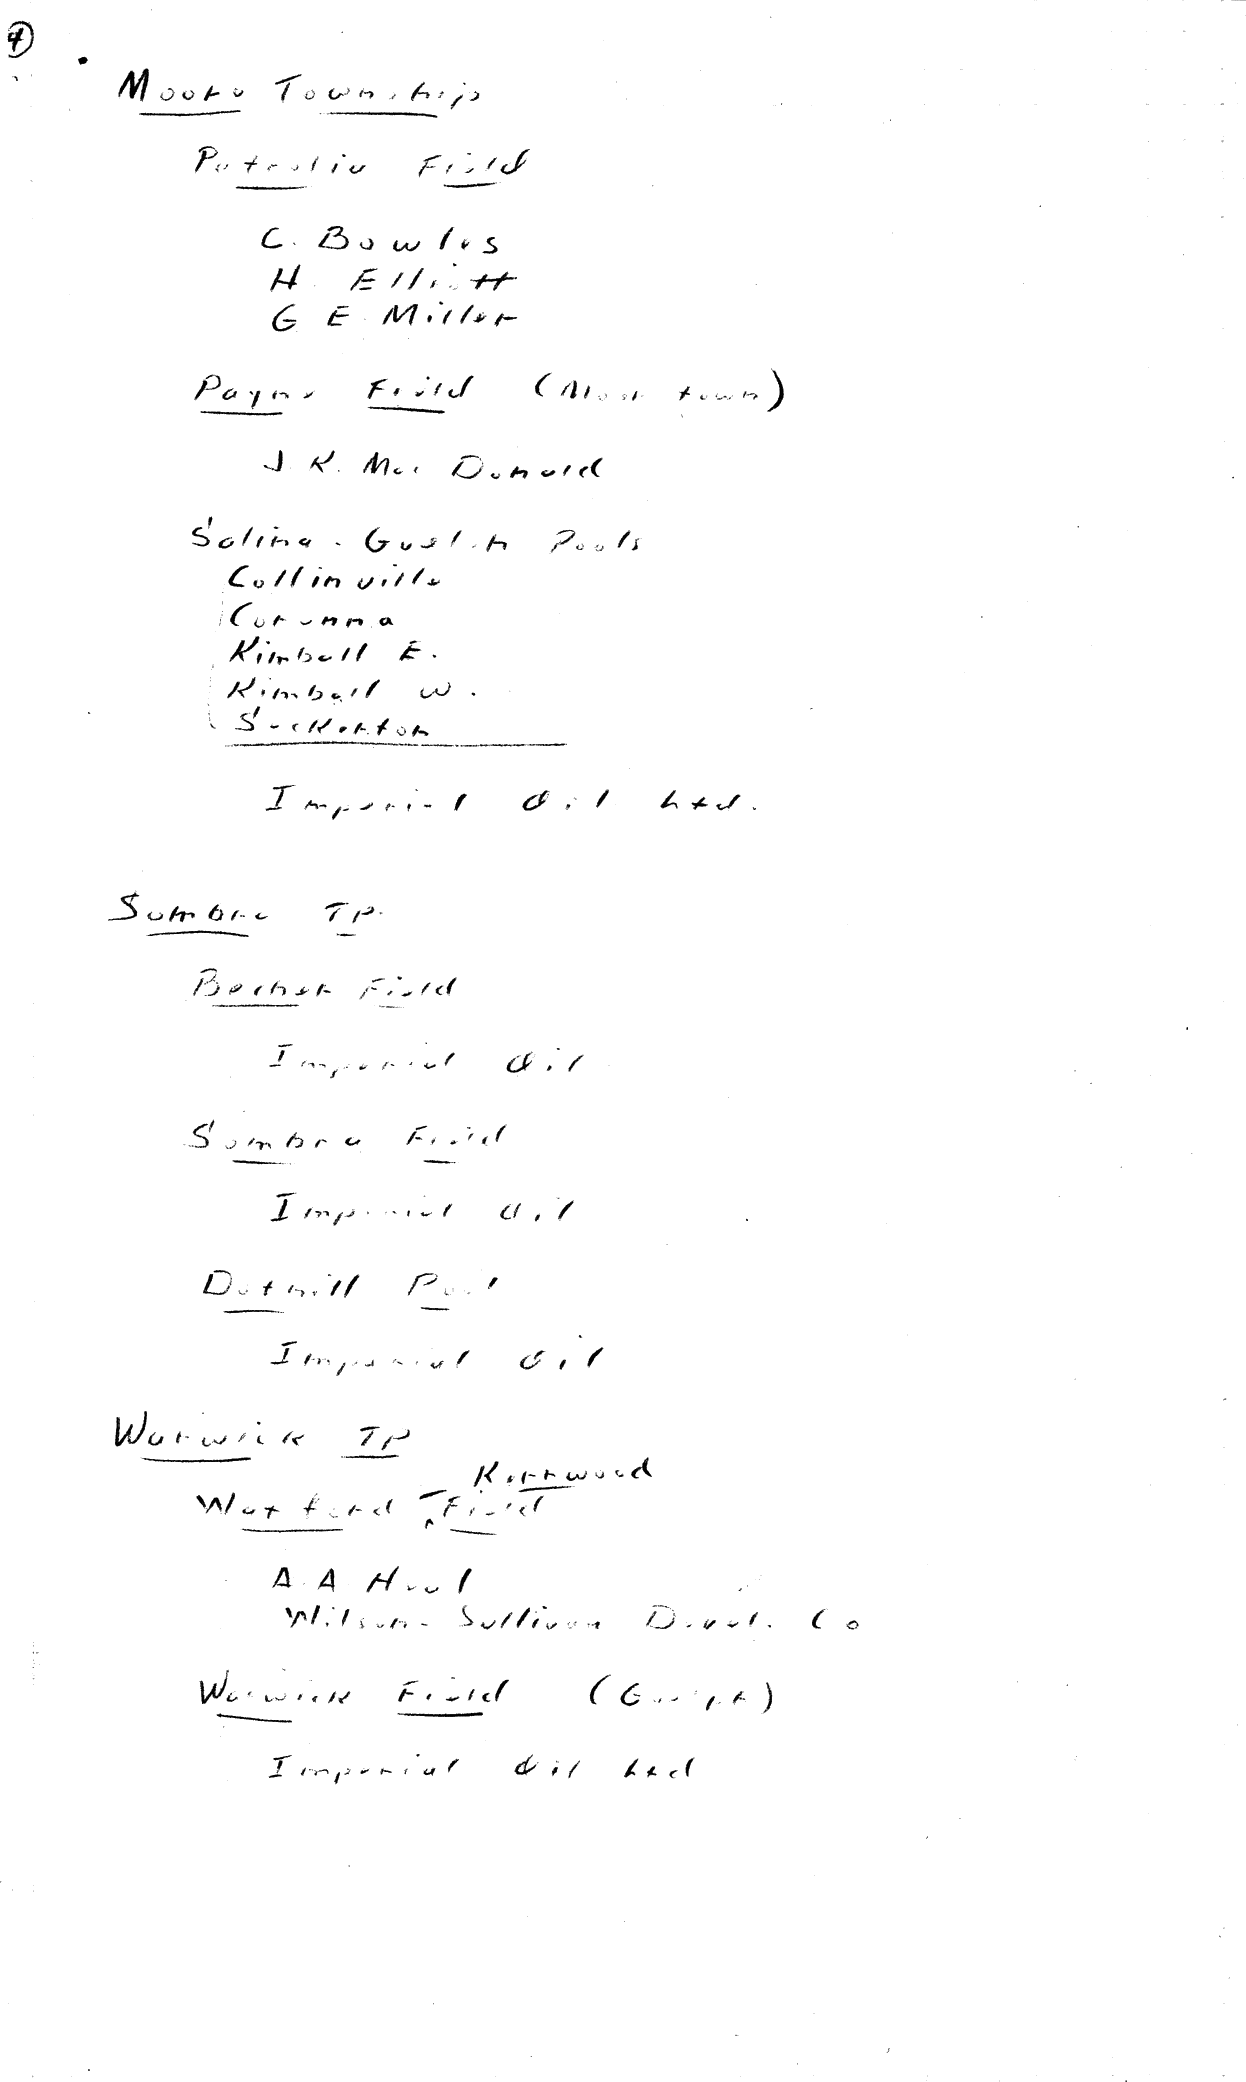 4
Moore Township
Petrolia Field
C. Bowles
H. Elliott
G E Miller
Payne Field (Moore town)
J. K. Mac Donald
Salina - Guelph Pools
Collinville
Corunna
Kimball E.
Kimball W.
Seckerton
Imperial Oil Ltd.
Sombra TP.
Becher Field
Imperial Oil
Sombra Field
Imperial Oil
Dothill Pool
Imperial Oil
Warwick TP
Kerrwood
Watford - Field
A. A.
Wilson - Sullivan Devel. Co
Warwick Field (Guelph)
Imperial Oil Ltd